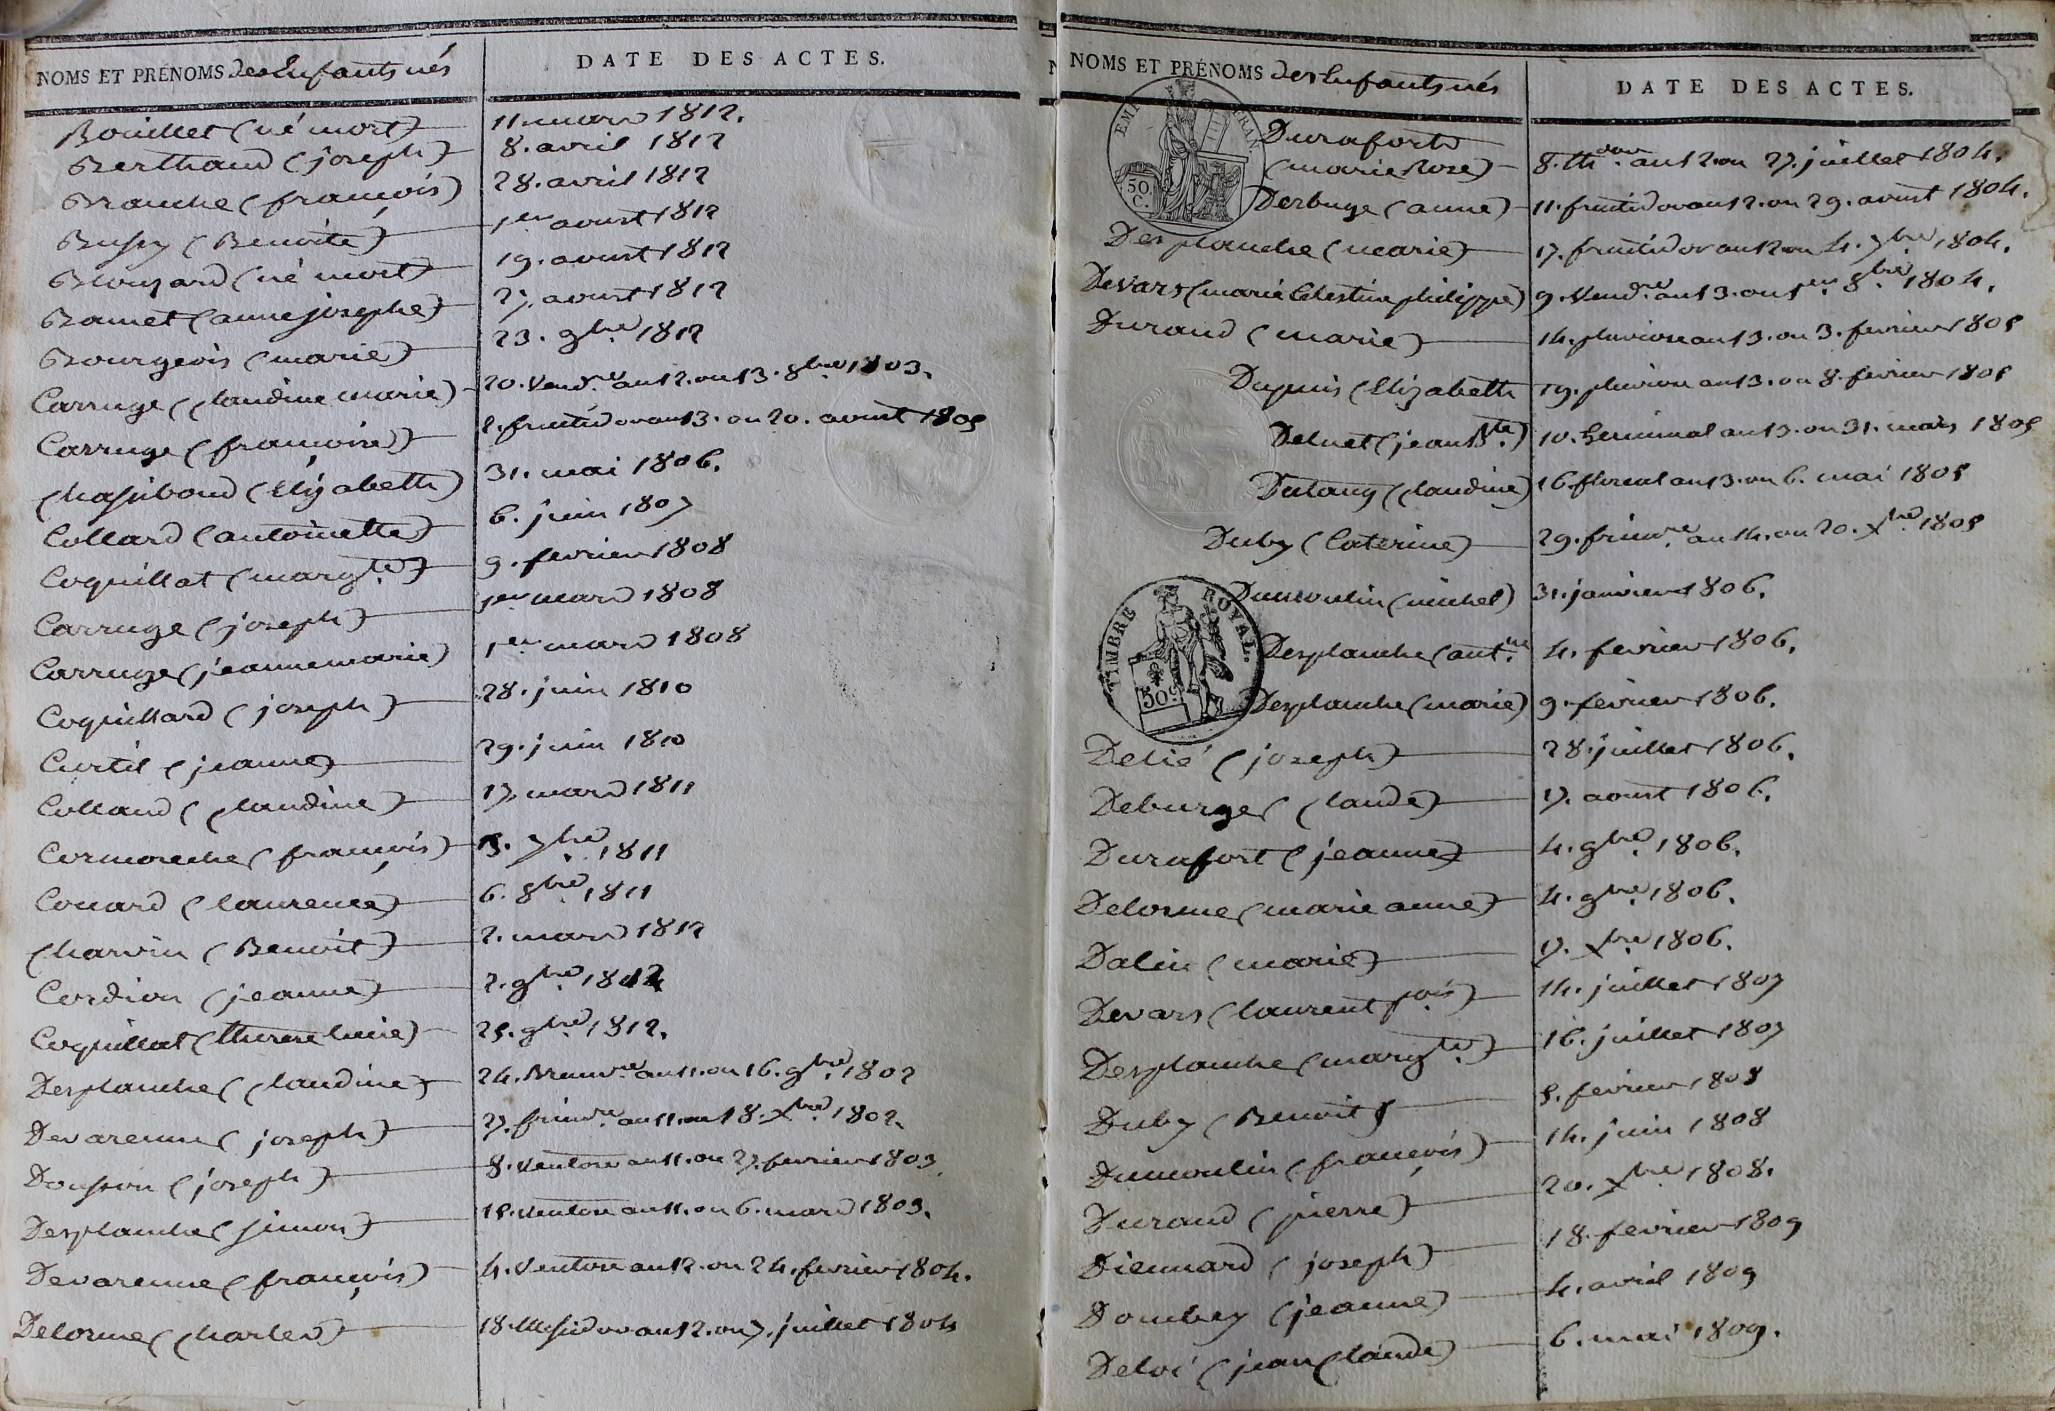 NOMS ET PRÉNOMS des Enfants nés DATE DES ACTES.
Bouillet (né mort) 11. mars 1812.
Berthaud (joseph) 8. avril 1812
Branche (françois) 28. avril 1812
Bussy (Benoite) 1er aoust 1812
Blouzard (né mort) 19. aoust 1812
Bamet (anne josephe) 27. aoust 1812
Bourgeois (marie) 23. 9bre 1812
Carruge (Claudine marie) 20. Vendre an 12. ou 13. 8bre 1803.
Carruge (françoise) 2. fructidor an 13. ou 20. aoust 1805
Chassiboud (Elizabeth) 31. mai 1806.
Collard (antoinette) 6. juin 1807
Coquillat (margte) 9. fevrier 1808
Carruge (joseph) 1er mars 1808
Carruge (jeanne marie) 1er mars 1808
Coquillard (joseph) 28. juin 1810
Curtil (jeanne) 29. juin 1810
Colland (Claudine) 17. mars 1811
Cormoreche (françois) 13. 7bre 1811
Couard (laurence) 6. 8bre 1811
Charvin (Benoit) 2. mars 1812
Cordion (jeanne) 2. 9bre 1812
Coquillat (therese lucie) 25. 9bre 1812.
Desplanche (Claudine) 24. Brumre an 11. ou 16. 9bre 1802
Devarenne (joseph) 27. frimre an 11. ou 18. Xbre 1802.
Dousson (joseph) 8. Ventose an 11. ou 27. fevrier 1803
Desplanche (simon) 15. Ventose an 11. ou 6. mars 1803.
Devarenne (françois) 4. Ventose an 12. ou 24. fevrier 1804.
Delorme (Charles) 18. Messidor an 12. ou 7. juillet 1804
NOMS ET PRÉNOMS des Enfants nés DATE DES ACTES.
50 C.
Durafort
(marie Rose) 8. thdor an 12. ou 27. juillet 1804.
Desbuge (anne) 11. fructidor an 12. ou 29. aoust 1804.
Desplanche (marie) 17. fructidor an 12 ou 4. 7bre 1804.
Devars (marie Celestine philippe) 9. Vendre an 13. ou 1er 8bre 1804.
Durand (marie) 14. pluviose an 13. ou 3. fevrier 1805
Dupuis (Elizabeth 19. pluviose an 13. ou 8. fevrier 1805
Deluet (jean Bte) 10. Germinal an 13. ou 31. mars 1805
Dulong (Claudine) 16. floreal an 13. ou 6. mai 1805
Duby (Caterine) 29. frimre an 14. ou 20. Xbre 1805
TIMBRE ROYAL.
50 c
Dumoulin (michel) 31. janvier 1806.
Desplanche (antne 4. fevrier 1806.
Desplanche (marie) 9. fevrier 1806.
Delié (joseph) 28. juillet 1806.
Deburge (Claude) 17. aoust 1806.
Durafort (jeanne) 4. 9bre 1806.
Delorme (marie anne) 4. 9bre 1806.
Dalin (marie) 17. Xbre 1806.
Devars (laurent fois) 14. juillet 1807
Desplanche (margte) 16. juillet 1807
Duby (Benoit) 5. fevrier 1808
Dumoulin (françois) 14. juin 1808
Durand (pierre) 20. Xbre 1808.
Diennard (joseph) 18. fevrier 1809
Dombey (jeanne) 4. avril 1809
Deloi (jean Claude) 6. mai 1809.